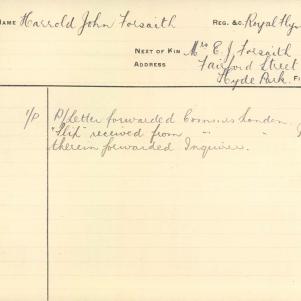 NAME Harrold John Forsaith REG. &C. Royal Flyin
NEXT OF KIN Mrs E. J. Forsaith
ADDRESS Fairford Street
Hyde Park. F
1/P P/letter forwarded Commrs London.
"Slip" received from " "
therein forwarded Inquirer.